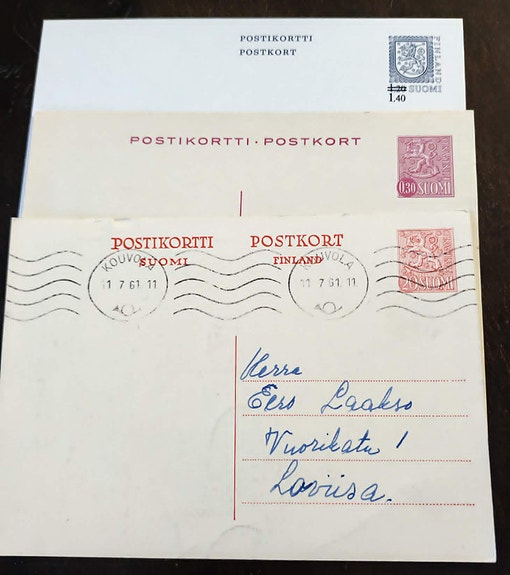 POSTIKORTTI
POSTKORT
FINLAND
1,20 SUOMI
1,40
POSTIKORTTI · POSTKORT
0,30 SUOMI
POSTIKORTTI POSTKORT
SUOMI FINLAND
KOUVOLA KOUVOLA
11 7 61. 11 11 7 61. 11
20 SUOMI
Herra
Eero Laakso
Vuorikatu 1
Loviisa.